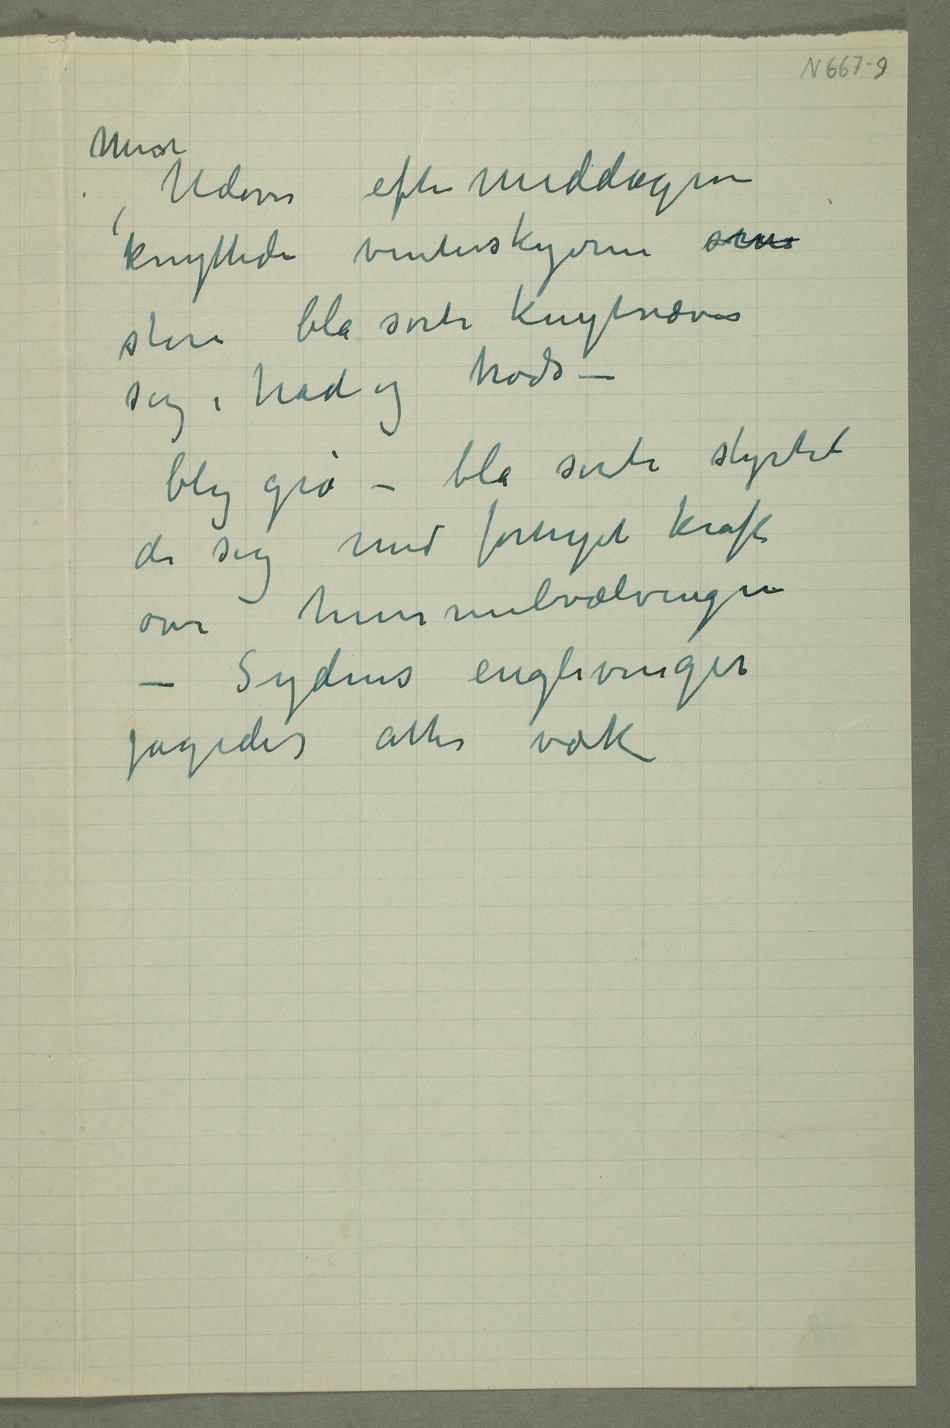 N 667-9
Men
Udover eftermiddagen
knyttede vinterskyerne som
store blå sorte knytnæver
sig i had og trods –
bly grå – blå sorte styrtet
de sig med fornyet kraft
over himmelvælvingen
– Sydens englevinger
jagedes atter væk